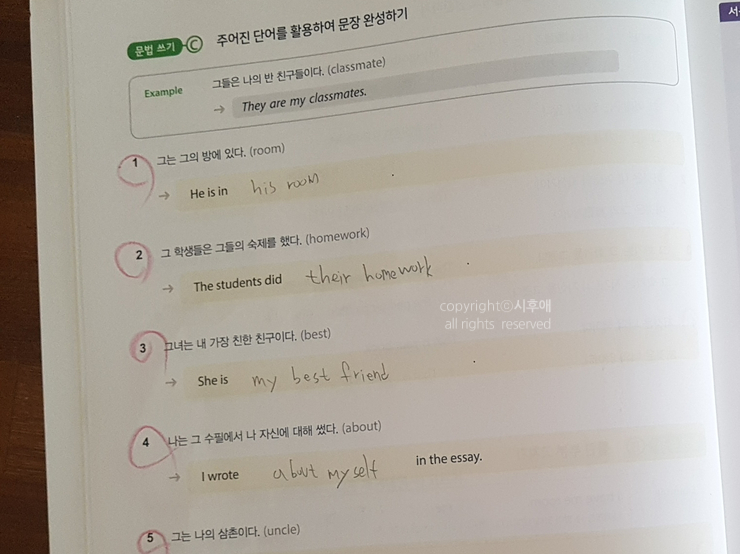 문법 쓰기 C 주어진 단어를 활용하여 문장 완성하기
서
Example 그들은 나의 반 친구들이다. (classmate)
→ They are my classmates.
1 그는 그의 방에 있다. (room)
→ He is in his room .
2 그 학생들은 그들의 숙제를 했다. (homework)
→ The students did their homework .
copyrightⓒ시후애
all rights reserved
3 그녀는 내 가장 친한 친구이다. (best)
→ She is my best friend .
4 나는 그 수필에서 나 자신에 대해 썼다. (about)
→ I wrote about myself in the essay.
5 그는 나의 삼촌이다. (uncle)